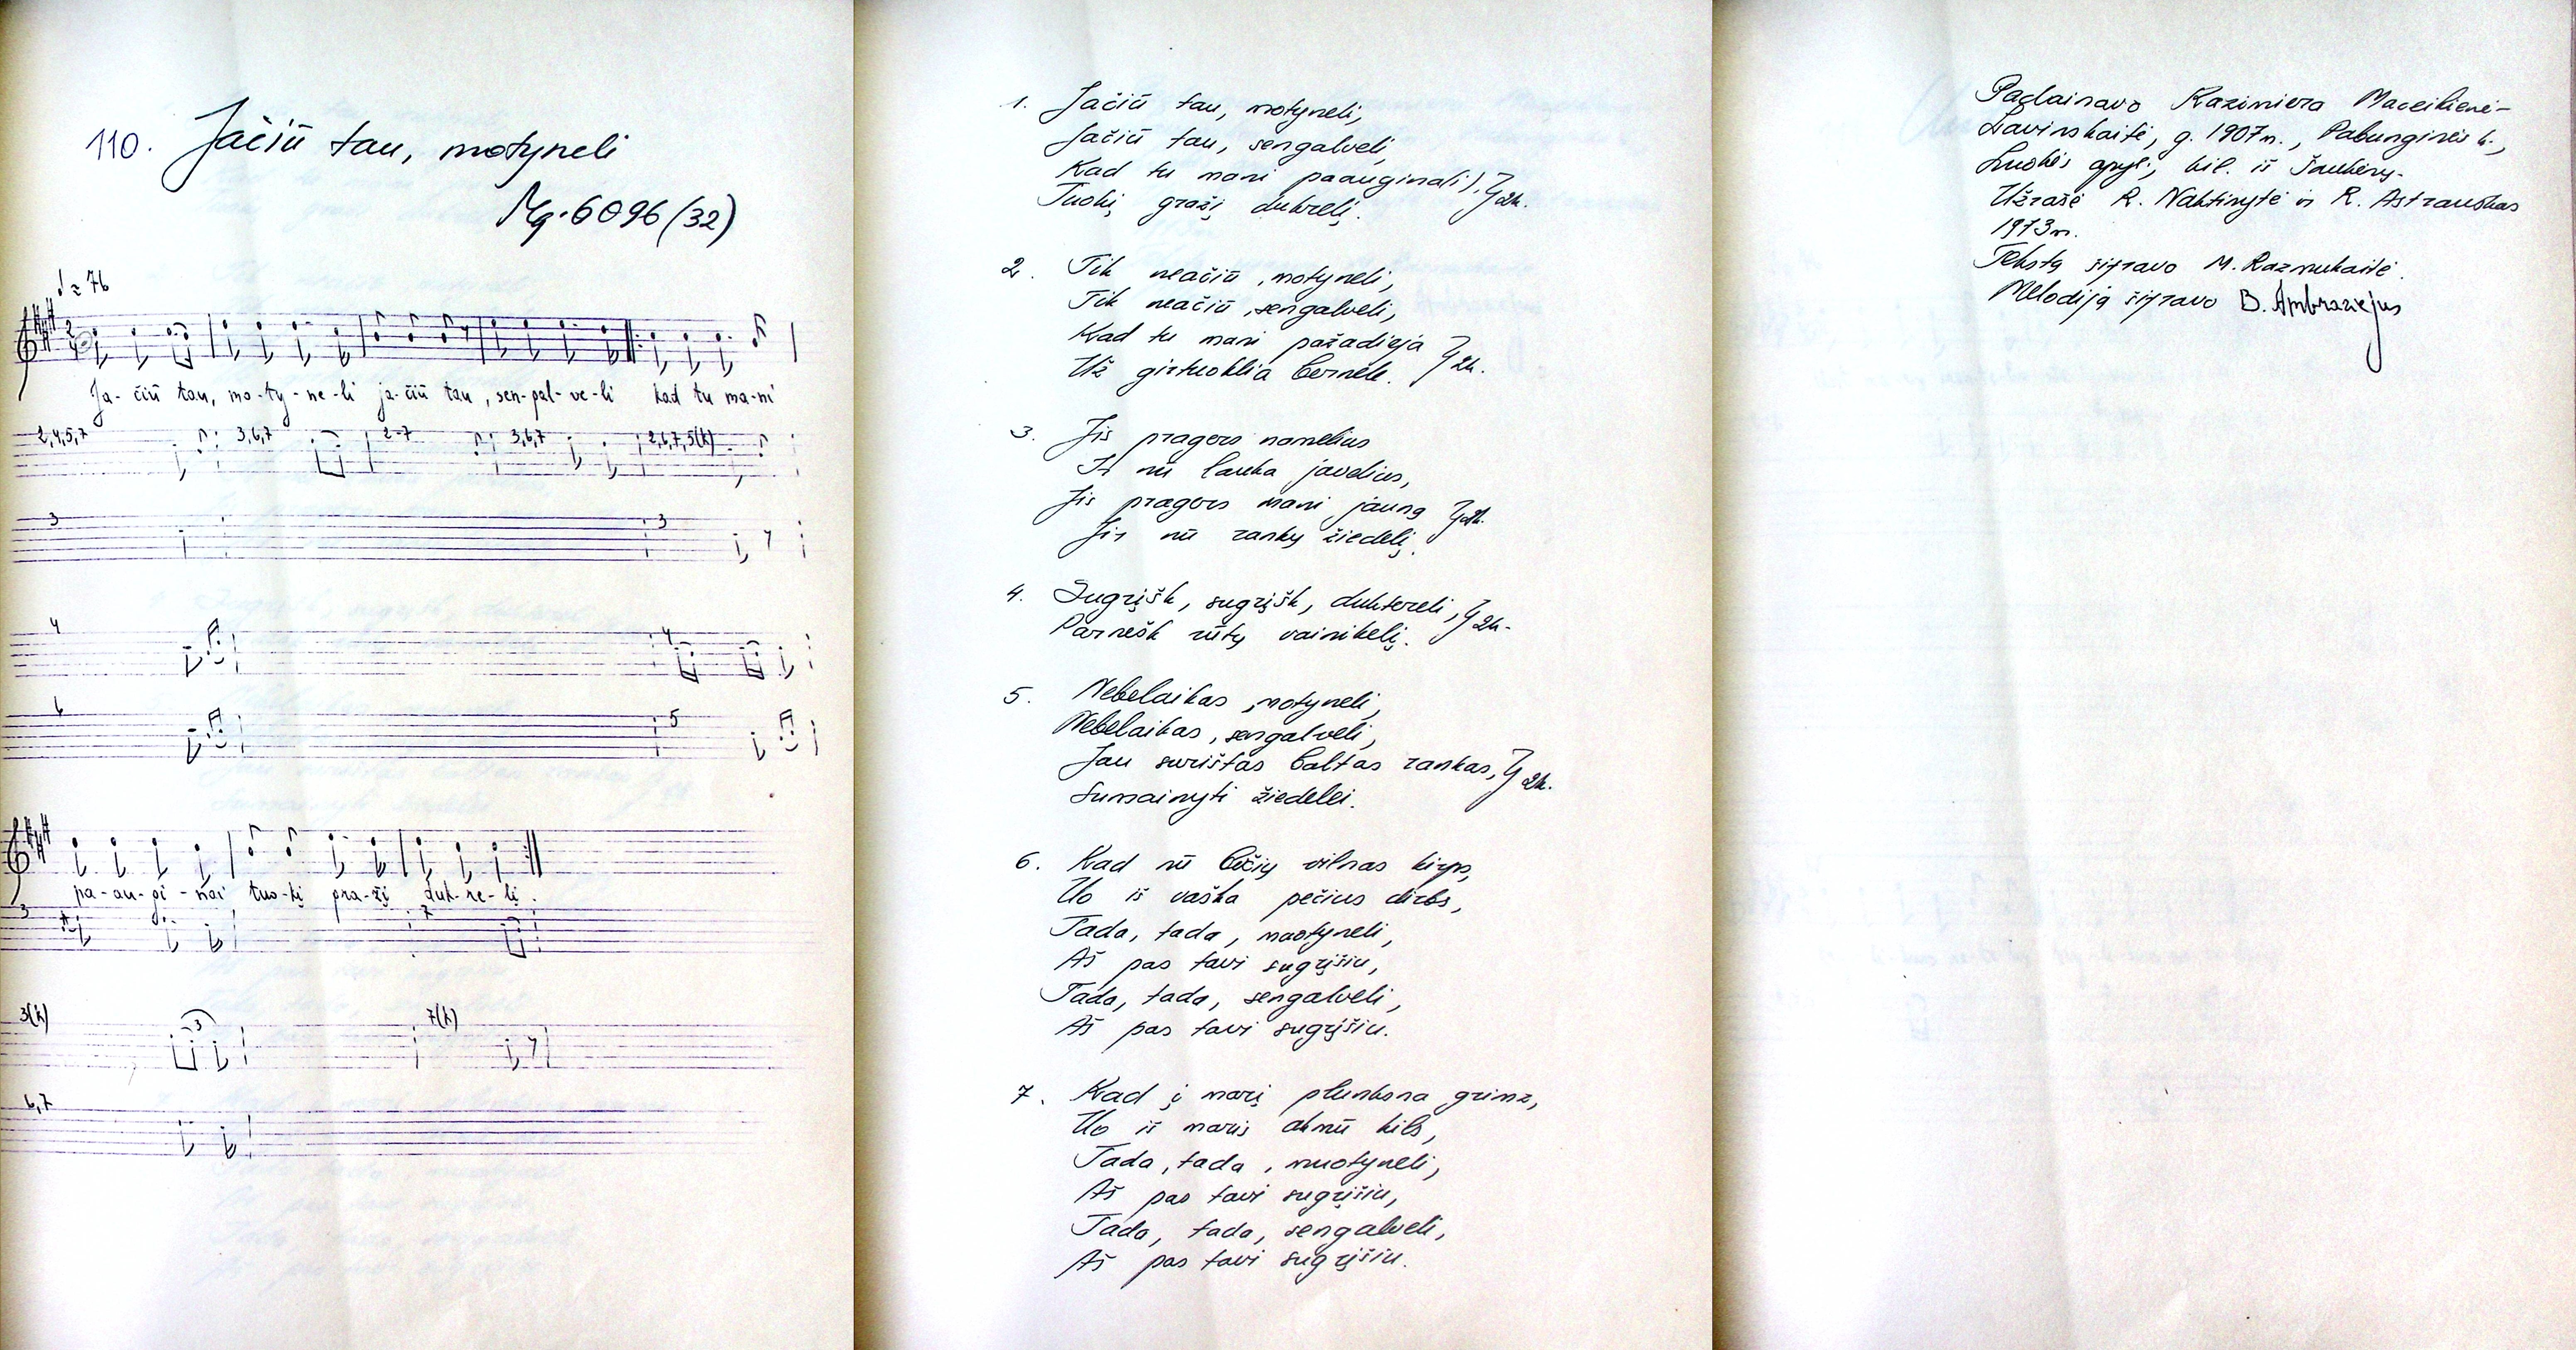 110. Jačiū tau, motyneli
Mg. 6096 (32)
♩ = 76
Ja- čiū tau, mo-ty-ne-li ja-čiū tau, sen-gal-ve-li kad tu ma-ni
2,4,5,7 3,6,7 2-7 3,6,7 2,6,7,5(k)
3 3
4 4
6 5
pa-au-gi-nai tuo-kį gra-žį duk-re-lį.
3 7
3(k) 3 7(k)
6,7
1. Jačiū tau, motyneli,
Jačiū tau, sengalveli,
Kad tu mani paauginai(i), } 2k.
Tuokį gražį dukrelį.
2. Tik neačiū, motyneli,
Tik neačiū, sengalveli,
Kad tu mani pažadieja } 2k.
Už girtuoklia bernele.
3. Jis pragers namelius
Ir nū lauka javelius,
Jis pragers mani jauną } 2k.
Jir nū rankų žiedelį.
4. Sugrįšk, sugrįšk, duktereli, } 2k.
Parnešk rūtų vainikelį.
5. Nebelaikas, motyneli,
Nebelaikas, sengalveli,
Jau surištas baltas rankas, } 2k.
Sumainyti žiedelei.
6. Kad nū bičių vilnas kirps,
Uo iš vaška pečius dirbs,
Tada, tada, muotyneli,
Aš pas tavi sugrįšiu,
Tada, tada, sengalveli,
Aš pas tavi sugrįšiu.
7. Kad į marį plunksna grimz,
Uo iš maris akmū kils,
Tada, tada, muotyneli,
Aš pas tavi sugrįšiu,
Tada, tada, sengalveli,
Aš pas tavi sugrįšiu.
Padainavo Kazimiera Maceikienė-
Lavinskaitė, g. 1907 m., Pabunginės k.,
Luokės apyl., kil. iš Šaukėnų.
Užrašė R. Naktinytė ir R. Astrauskas
1973 m.
Tekstą šifravo M. Razmukaitė.
Melodiją šifravo B. Ambraziejus